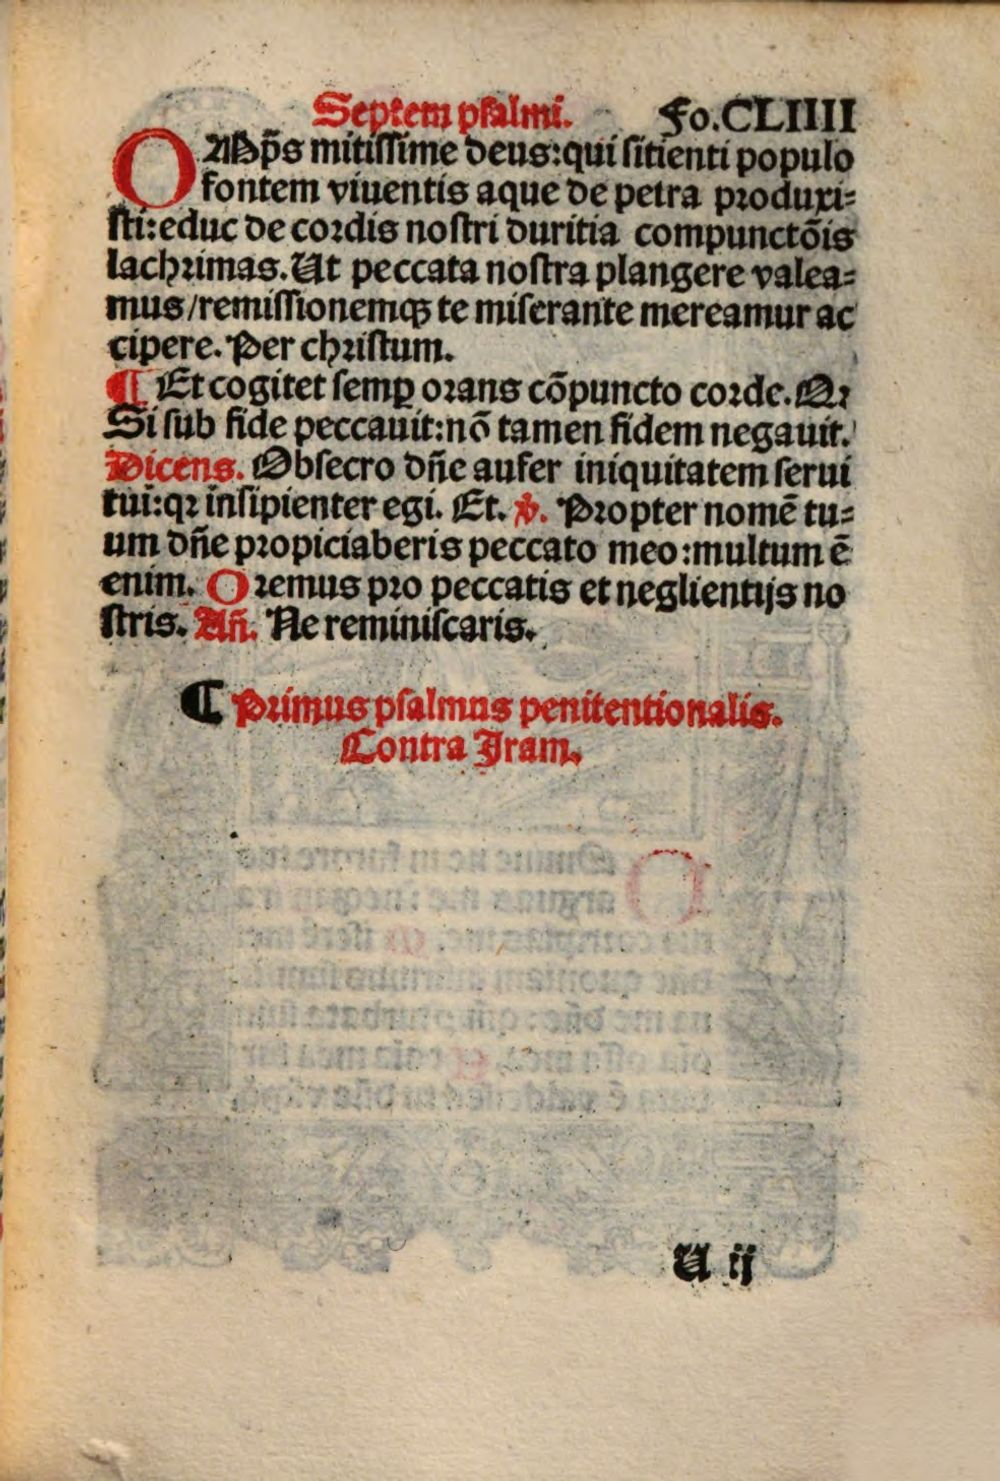 Septem psalmi. Fo.CLIIII
OMp̄s mitissime deus:qui sitienti populo
fontem viuentis aque de petra produxi=
sti:educ de cordis nostri duritia compunctōis
lachrimas. Ut peccata nostra plangere valea=
mus/remissionemqꝫ te miserante mereamur ac
cipere. Per christum.
¶ Et cogitet semꝑ orans cōpuncto corde. Qꝛ
Si sub fide peccauit:nō tamen fidem negauit.
Dicens. Obsecro dn̄e aufer iniquitatem serui
tui:qꝛ insipienter egi. Et. ꝟ. Propter nomē tu=
um dn̄e propiciaberis peccato meo:multum ē
enim. Oremus pro peccatis et neglientijs no
stris. An̄. Ne reminiscaris.
¶ Primus psalmus penitentionalis.
Contra Iram.
U ij